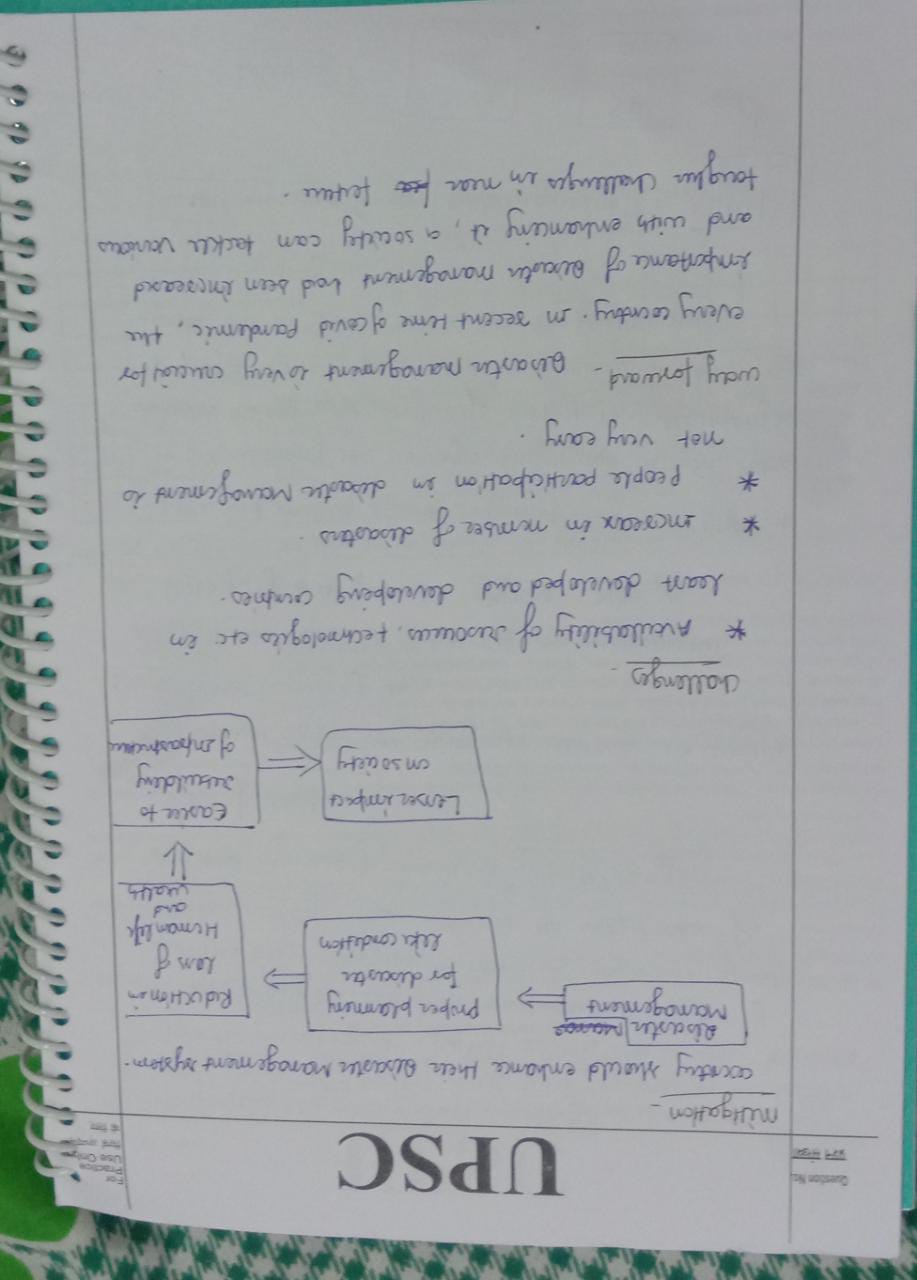 Question No.
UPSC
For
Practice
Use Only
Mitigation -
country should enhance their Disaster Management system.
Disaster
Management
Proper planning
for disaster
like condition
Reduction in
Loss of
Human life
and
wealth
Easier to
rebuilding
of infrastructure
Lesser impact
on society
Challenges -
* Availability of resources, technologies etc in
least developed and developing countries.
* increase in number of disasters.
* People participation in disaster Management is
not very easy.
Way forward - Disaster management is very crucial for
every country. In recent time of covid Pandemic, the
importance of Disaster management had been increased
and with enhancing it, a society can tackle various
tougher challenges in near future.